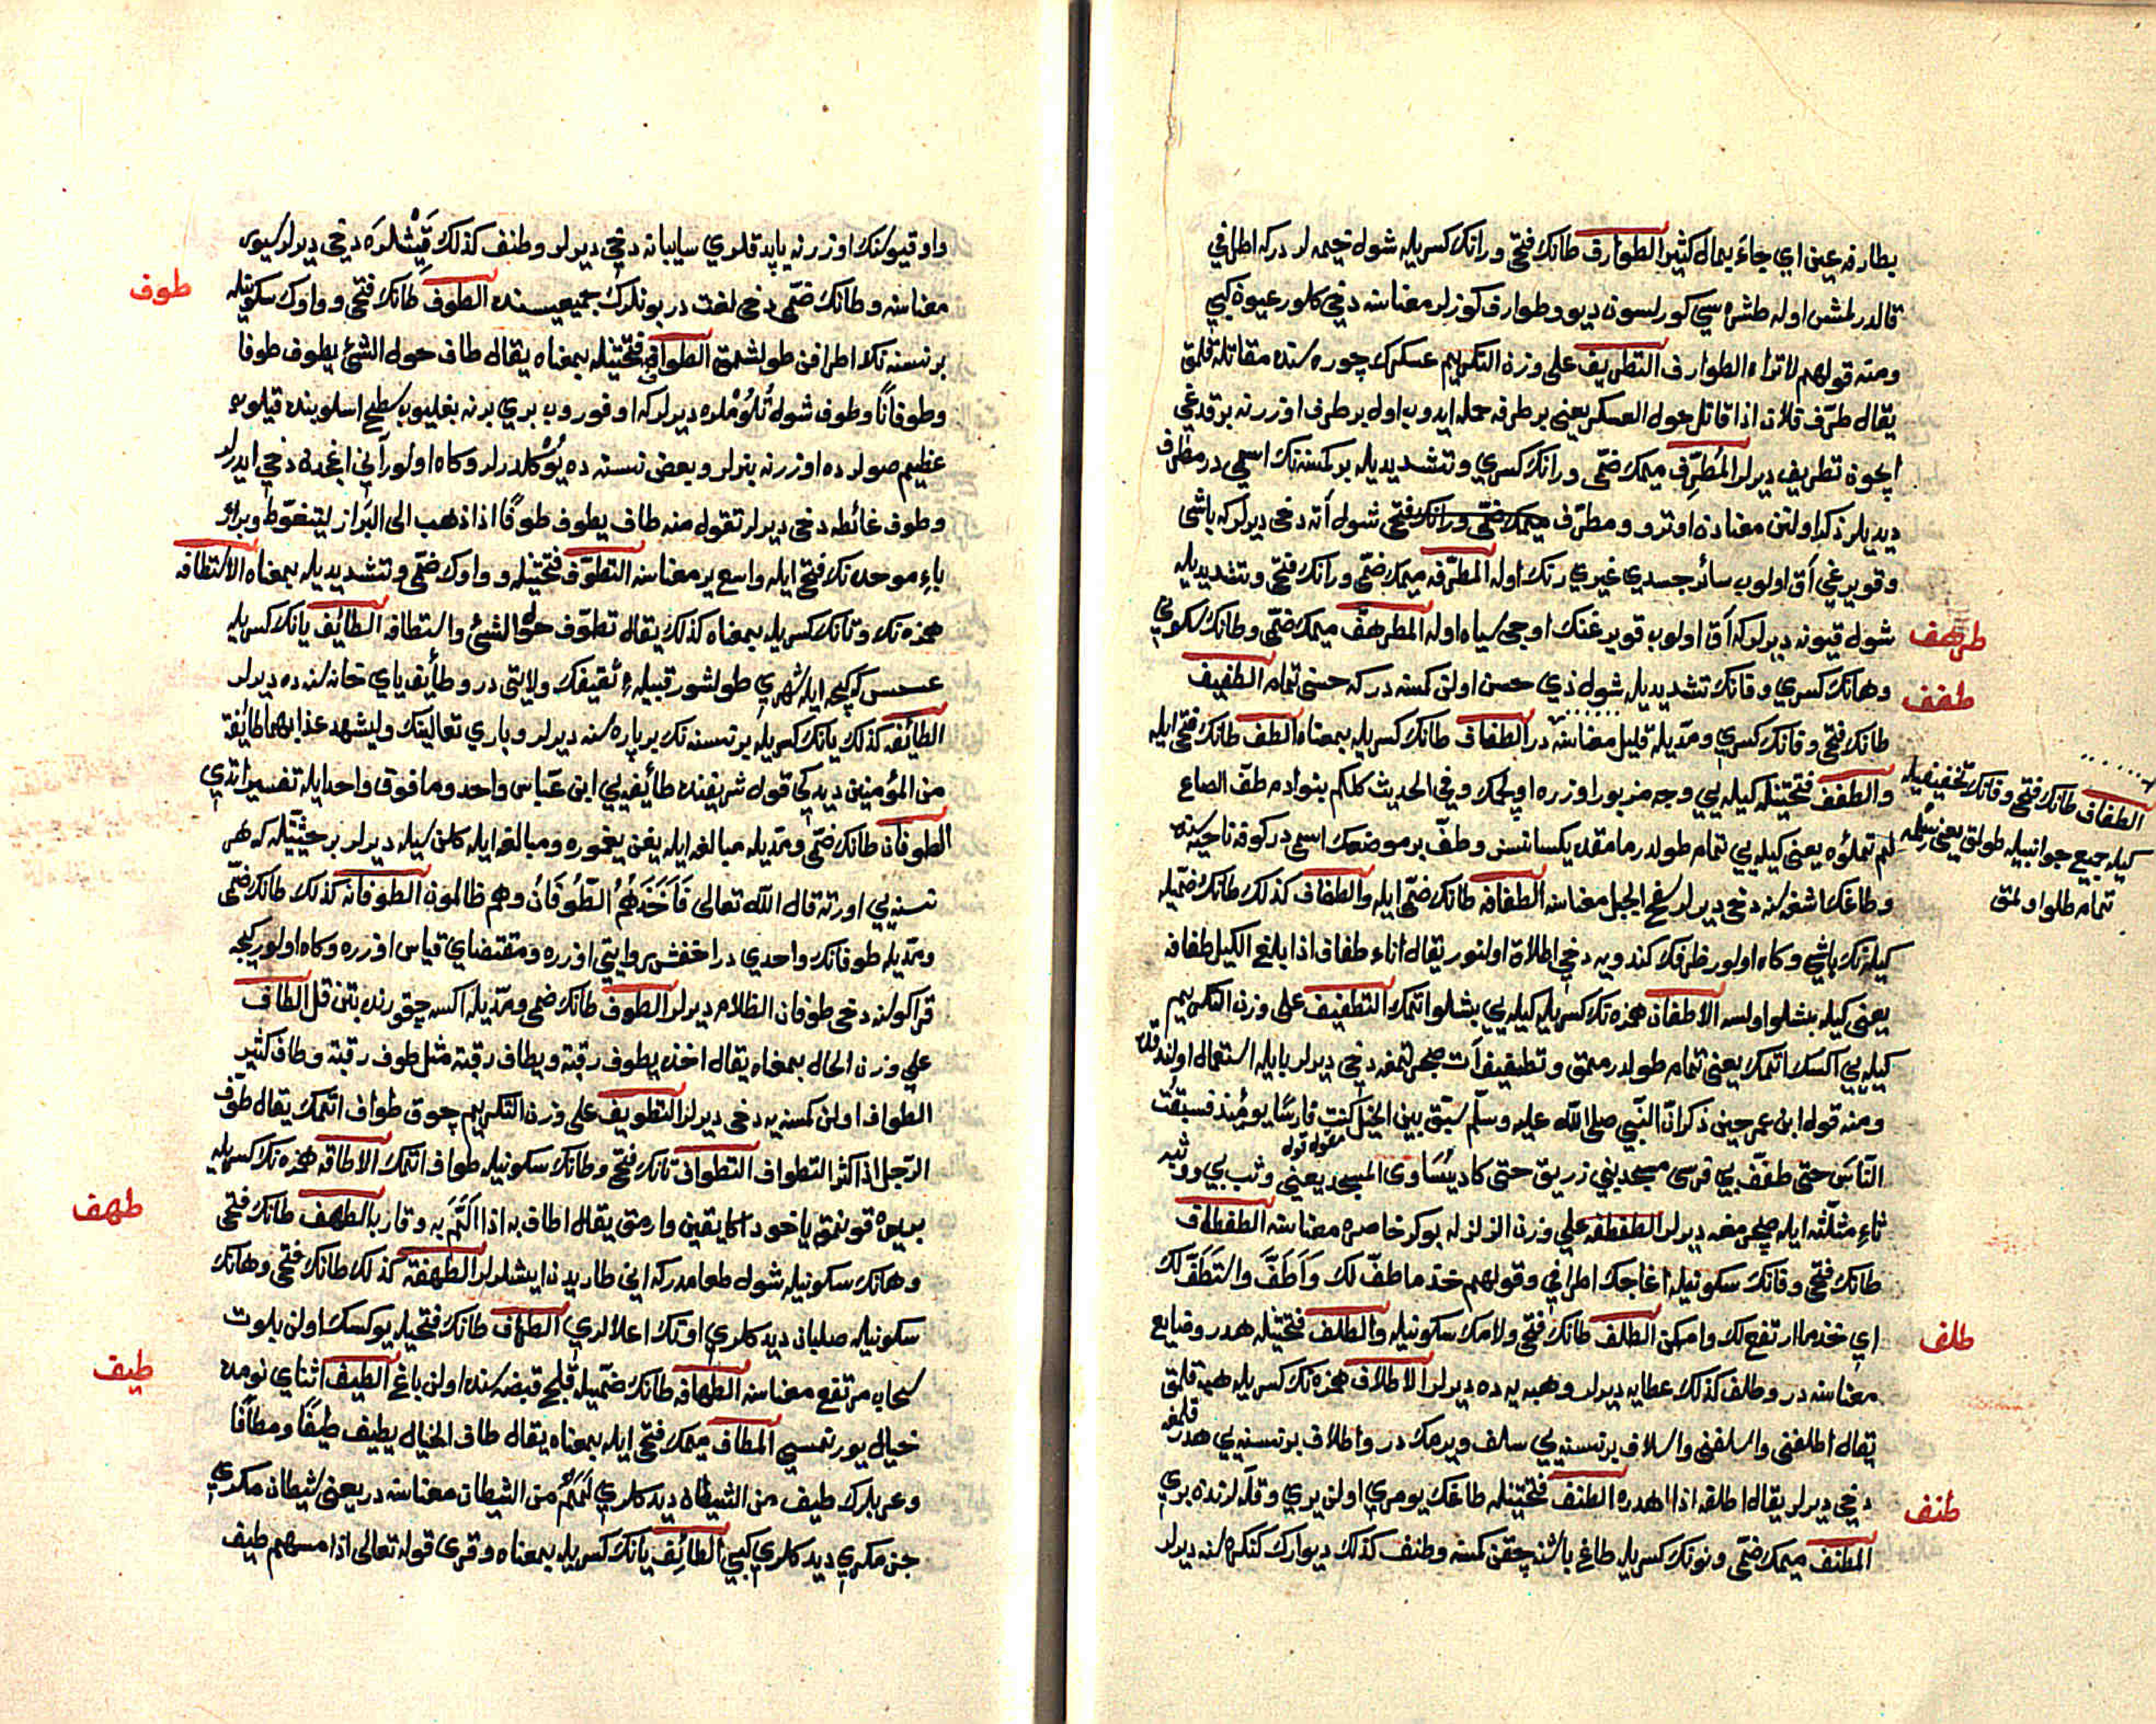 بطارفه عين اي جاء بمال كثير الطوارف طانك فتحى ورانك كسريله شول خيمه لر دركه اطرافي
قالدرلمش اوله طشره سي كورلسون ديو وطوارف كوزلر معناسنه دخي كلور عيون كبي
ومنه قولهم لا تراه الطوارف التطريف على وزن التكريم عسكرك چوره سنده مقاتله قلمق
يقال طرّف فلان اذا قاتل حول العسكر يعنى بر طرفه حمله ايدوب اول بر طرف اوزرنه برقدغي
ايچون تطريف ديرلر المُطرّف ميمك ضمّى ورانك كسري وتشديديله بر كمسنه نك اسمي در مطرّف
ديديلر ذكر اولنن معنادن اوترو ومطرّف ميمك ضمّى ورانك فتحى شول آته دخى ديرلر كه باشى
وقويرغي آق اولوب سائر جسدي غيري رنك اوله المطرّفه ميمك ضمّى ورانك فتحى وتشديديله
شول قيونه ديرلر كه آق اولوب قويرغنك اوجى سياه اوله المطرهفّ ميمك ضمّى وطانك سكوني
طرهف
وهانك كسري وفانك تشديديله شول ذي حسن اولن كمسنه در كه حسنى تمام الطفيف
طفف
طانك فتحى وفانك كسري ومدّيله قليل معناسنه در الطفاف طانك كسريله بمعناه الطف طانك فتحى ايله
والطفف فتحتينله كيله يي وجه مزبور اوزره اوپلچمك وفي الحديث كلكم بنو ادم طفّ الصاع
الطفاف طانك فتحى وفانك تخفيفيله
كيله جميع جوانبيله طولق يعنى
تمام طلو اولمق
لم تملؤه يعنى كيله يي تمام طولدرمامقده يكسانسز وطفّ بر موضعك اسمى در كوفه ناحيه سنده
وطاغك اشغه سنه دخى ديرلر سفح الجبل معناسنه الطفافه طانك ضمّى ايله والطفاف كذلك طانك ضمّيله
كيله نك باشي وكاه اولور ظرفك كندويه دخي اطلاق اولنور يقال اناء طفاف اذا بلغ الكيل طفافه
يعنى كيله بشلو اولسه الاطفاف همزه نك كسريله كيله يي بشلو اتمك التطفيف على وزن التكريم
كيله يي اكسك اتمك يعنى تمام طولدرممق وتطفيف آت صچرتمغه دخي ديرلر با ايله استعمال اولنديغنده
ومنه قول ابن عمر حين ذكر انّ النّبي صلى الله عليه وسلّم سبّق بين الخيل كنت فارسًا يومئذ فسبقت
النّاس حتى طفّف بي فرسى مسجد بني زريق حتى كاد يساوى المسجد يعنى وثب بي ووثبه
ثاء مثلّثه ايله صچرمغه ديرلر الطفطفه علي وزن الزلزله بوكر خاصره معناسنه الطفطاف
طانك فتحى وفانك سكونيله اغاجك اطرافي وقولهم خذ ما طفّ لك وَاَطَفَّ وَاستَطَفّ لك
اي خذ ما ارتفع لك وامكن الطلف طانك فتحى ولامك سكونيله والطلف فتحتينله هدر وضايع
طلف
معناسنه در وطلف كذلك عطايه ديرلر وهبه يه ده ديرلر الاطلاف همزه نك كسريله هبه قلمق
يقال اطلفنى واسلفنى واسلاف بر نسنه يي سلف ويرمك در واطلاف بر نسنه يي هدر قلمغه
دخي ديرلر يقال اطلفه اذا اهدره الطنف فتحتينله طاغك يومري اولن يري وقلّه لرنده يري
طنف
المطنف ميمك ضمّى ونونك كسريله طاغ باشنه چقن كمسنه وطنف كذلك ديوارك كنكره سنه ديرلر
داو قپوسنك اوزرنه ياپدقلري سايبانه دخي ديرلر وطنف كذلك قَيْشْلره دخي ديرلر سيور
معناسنه وطانك ضمّى دخى لغت در بونلرك جميعيسنده الطوف طانك فتحى وواوك سكونيله
طوف
بر نسنه نك اطرافن طولشمق الطواف فتحتينله بمعناه يقال طاف حول الشئ يطوف طوفا
وطوفانًا وطوف شول تُلُوْملره ديرلر كه اوفوروب بري برنه بغليوب سطح اسلوبنده قيلوب
عظيم صولرده اوزرنه بنرلر وبعض نسنه ده يُوْكلدرلر وكاه اولور آني اغجدن دخي ايدرلر
وطوف غائطه دخى ديرلر تقول منه طاف يطوف طوفًا اذا ذهب الى البَراز ليتغوّط وبراز
باء موحده نك فتحى ايله واسع ير معناسنه التطوّف فتحتينله وواوك ضمّى وتشديديله بمعناه الاستطافه
همزه نك وتانك كسريله بمعناه كذلك يقال تطوّف حول الشئ واستطافه الطائف يانك كسريله
عسس كه كيجه ايله شهري طولشور قبيلهء ثقيفك ولايتى در وطائف ياي خانه سنه ده ديرلر
الطائفه كذلك يانك كسريله بر نسنه نك بر پاره سنه ديرلر وباري تعالينك وليشهد عذابهما طائفة
من المؤمنين ديدكي قول شريفنده طائفه يي ابن عبّاس واحد وما فوق واحد ايله تفسير اتدي
الطوفان طانك ضمّى ومدّيله مبالغه ايله يغن يغموره ومبالغه ايله كلن سيله ديرلر بر حيثيّتله كه هر
نسنه يي اورته قال الله تعالى فَاَخَذَهُمُ الطُّوفَانُ وهم ظالمون الطوفانه كذلك طانك ضمّى
ومدّيله طوفانك واحدي در اخفش روايتي اوزره ومقتضاي قياس اوزره وكاه اولور كيجه
قراكولنه دخى طوفان الظلام ديرلر الطوف طانك ضمى ومدّيله اكسه چقورنده بتن قل الطاف
علي وزن الحال بمعناه يقال اخذ بطوف رقبته وبطاف رقبته مثل طوف رقبته وطاف كثير
الطواف اولن كمسنه يه دخى ديرلر التطويف على وزن التكريم چوق طواف اتمك يقال طوّف
الرّجل اذا اكثر التطواف التطواف تانك فتحى وطانك سكونيله طواف اتمك الاطافه همزه نك كسريله
قونمق ياخود اكا يقين وارمق يقال اطاف به اذا اَلَمَّ به وقاربه الطهف طانك فتحى
طهف
وهانك سكونيله شول طعامدر كه انى طاريدن ايشلرلر الطهفة كذلك طانك فتحى وهانك
سكونيله صلبان ديدكلري اوتك اعلالري الطهاف طانك فتحيله يوكسك اولن بلوت
سحاب مرتفع معناسنه الطهافه طانك ضمّيله قلج قبضه سنده اولن باغ الطيف اثناي نومده
طيف
خيال يورتمسي المطاف ميمك فتحى ايله بمعناه يقال طاف الخيال يطيف طيفًا ومطافًا
وعربلرك طيف من الشيطان ديدكلري لَمَمٌ من الشيطان معناسنه در يعنى شيطان مكري
جن مكري ديدكلري كبي الطائف يانك كسريله بمعناه وقرئ قوله تعالى اذا مسهم طيف